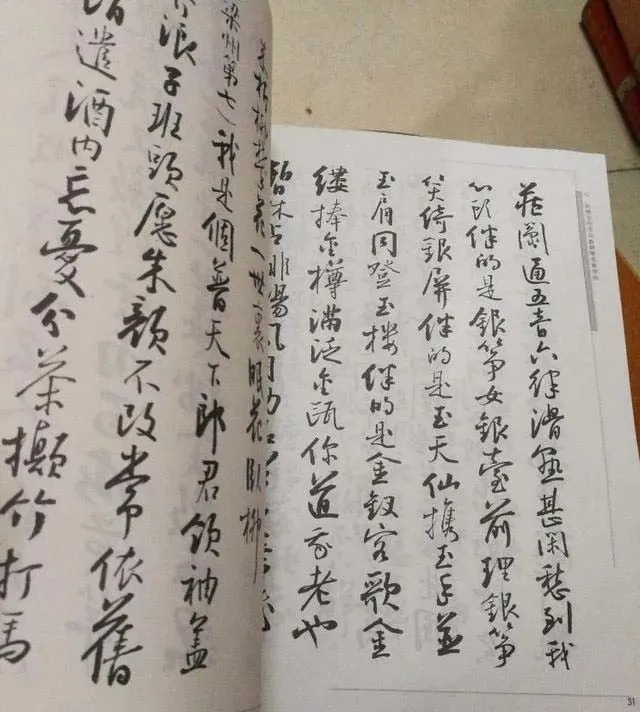 折柳攀花一世裏眠花臥柳
梁州第七我是個普天下郎君領袖蓋
界浪子班頭願朱顏不改常依舊
遣酒內忘憂分茶攧竹打馬
藏鬮通五音六律滑熟甚閑愁到我
心頭伴的是銀箏女銀臺前理銀箏
笑倚銀屏伴的是玉天仙攜玉手並
玉肩同登玉樓伴的是金釵客歌金
縷捧金樽滿泛金甌你道我老也
暫休占排場風月功
31